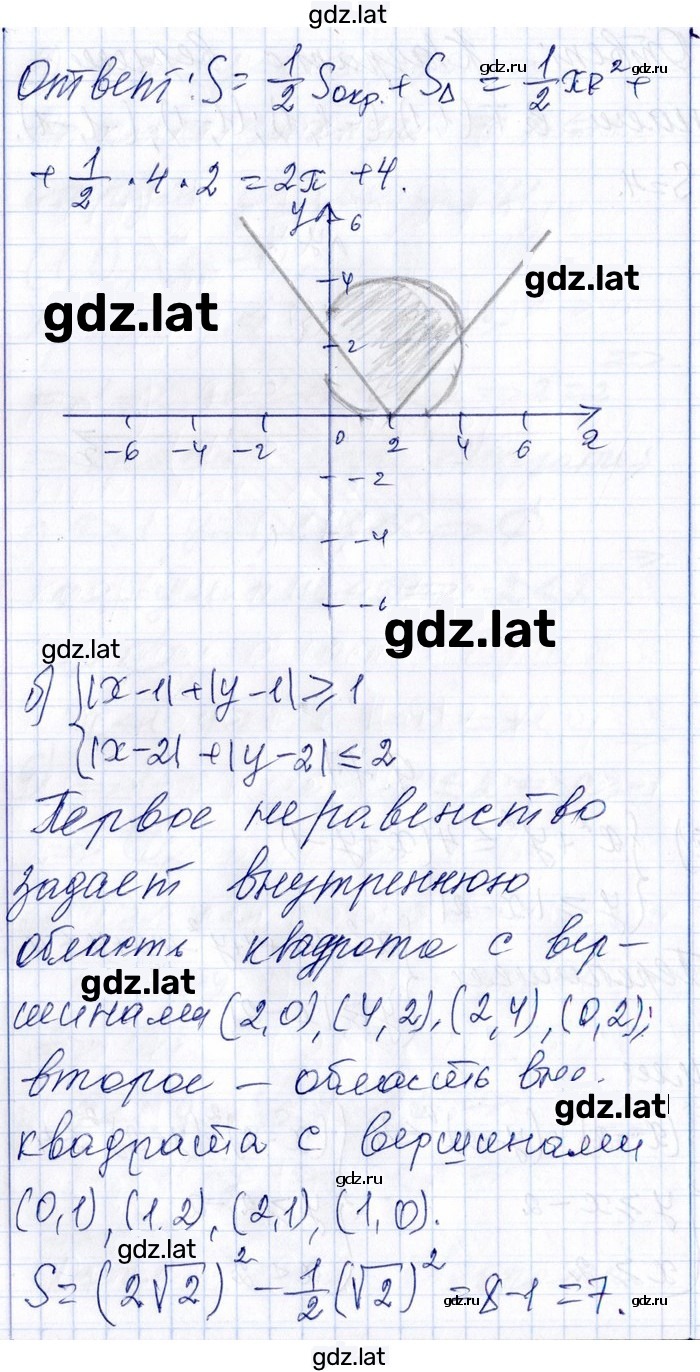 gdz.lat
Ответ: S = 1/2 Sокр. + S∆ = 1/2 πR² +
gdz.ru gdz.ru
+ 1/2 · 4 · 2 = 2π + 4.
y 6
gdz.lat
4
gdz.lat
2
-6 -4 -2 0 2 4 6 x
-2
-4
-6
gdz.lat
gdz.lat
б) { |x-1| + |y-1| ⩾ 1
|x-2| + |y-2| ≤ 2
Первое неравенство
задает внутреннюю
область квадрата с вер-
gdz.lat
шинами (2,0), (4,2), (2,4), (0,2);
второе – область вне
gdz.lat
квадрата с вершинами
gdz.ru
(0,1), (1,2), (2,1), (1,0).
gdz.lat
S = (2√2)² - 1/2 (√2)² = 8-1 = 7.
gdz.ru gdz.ru gdz.ru
gdz.lat